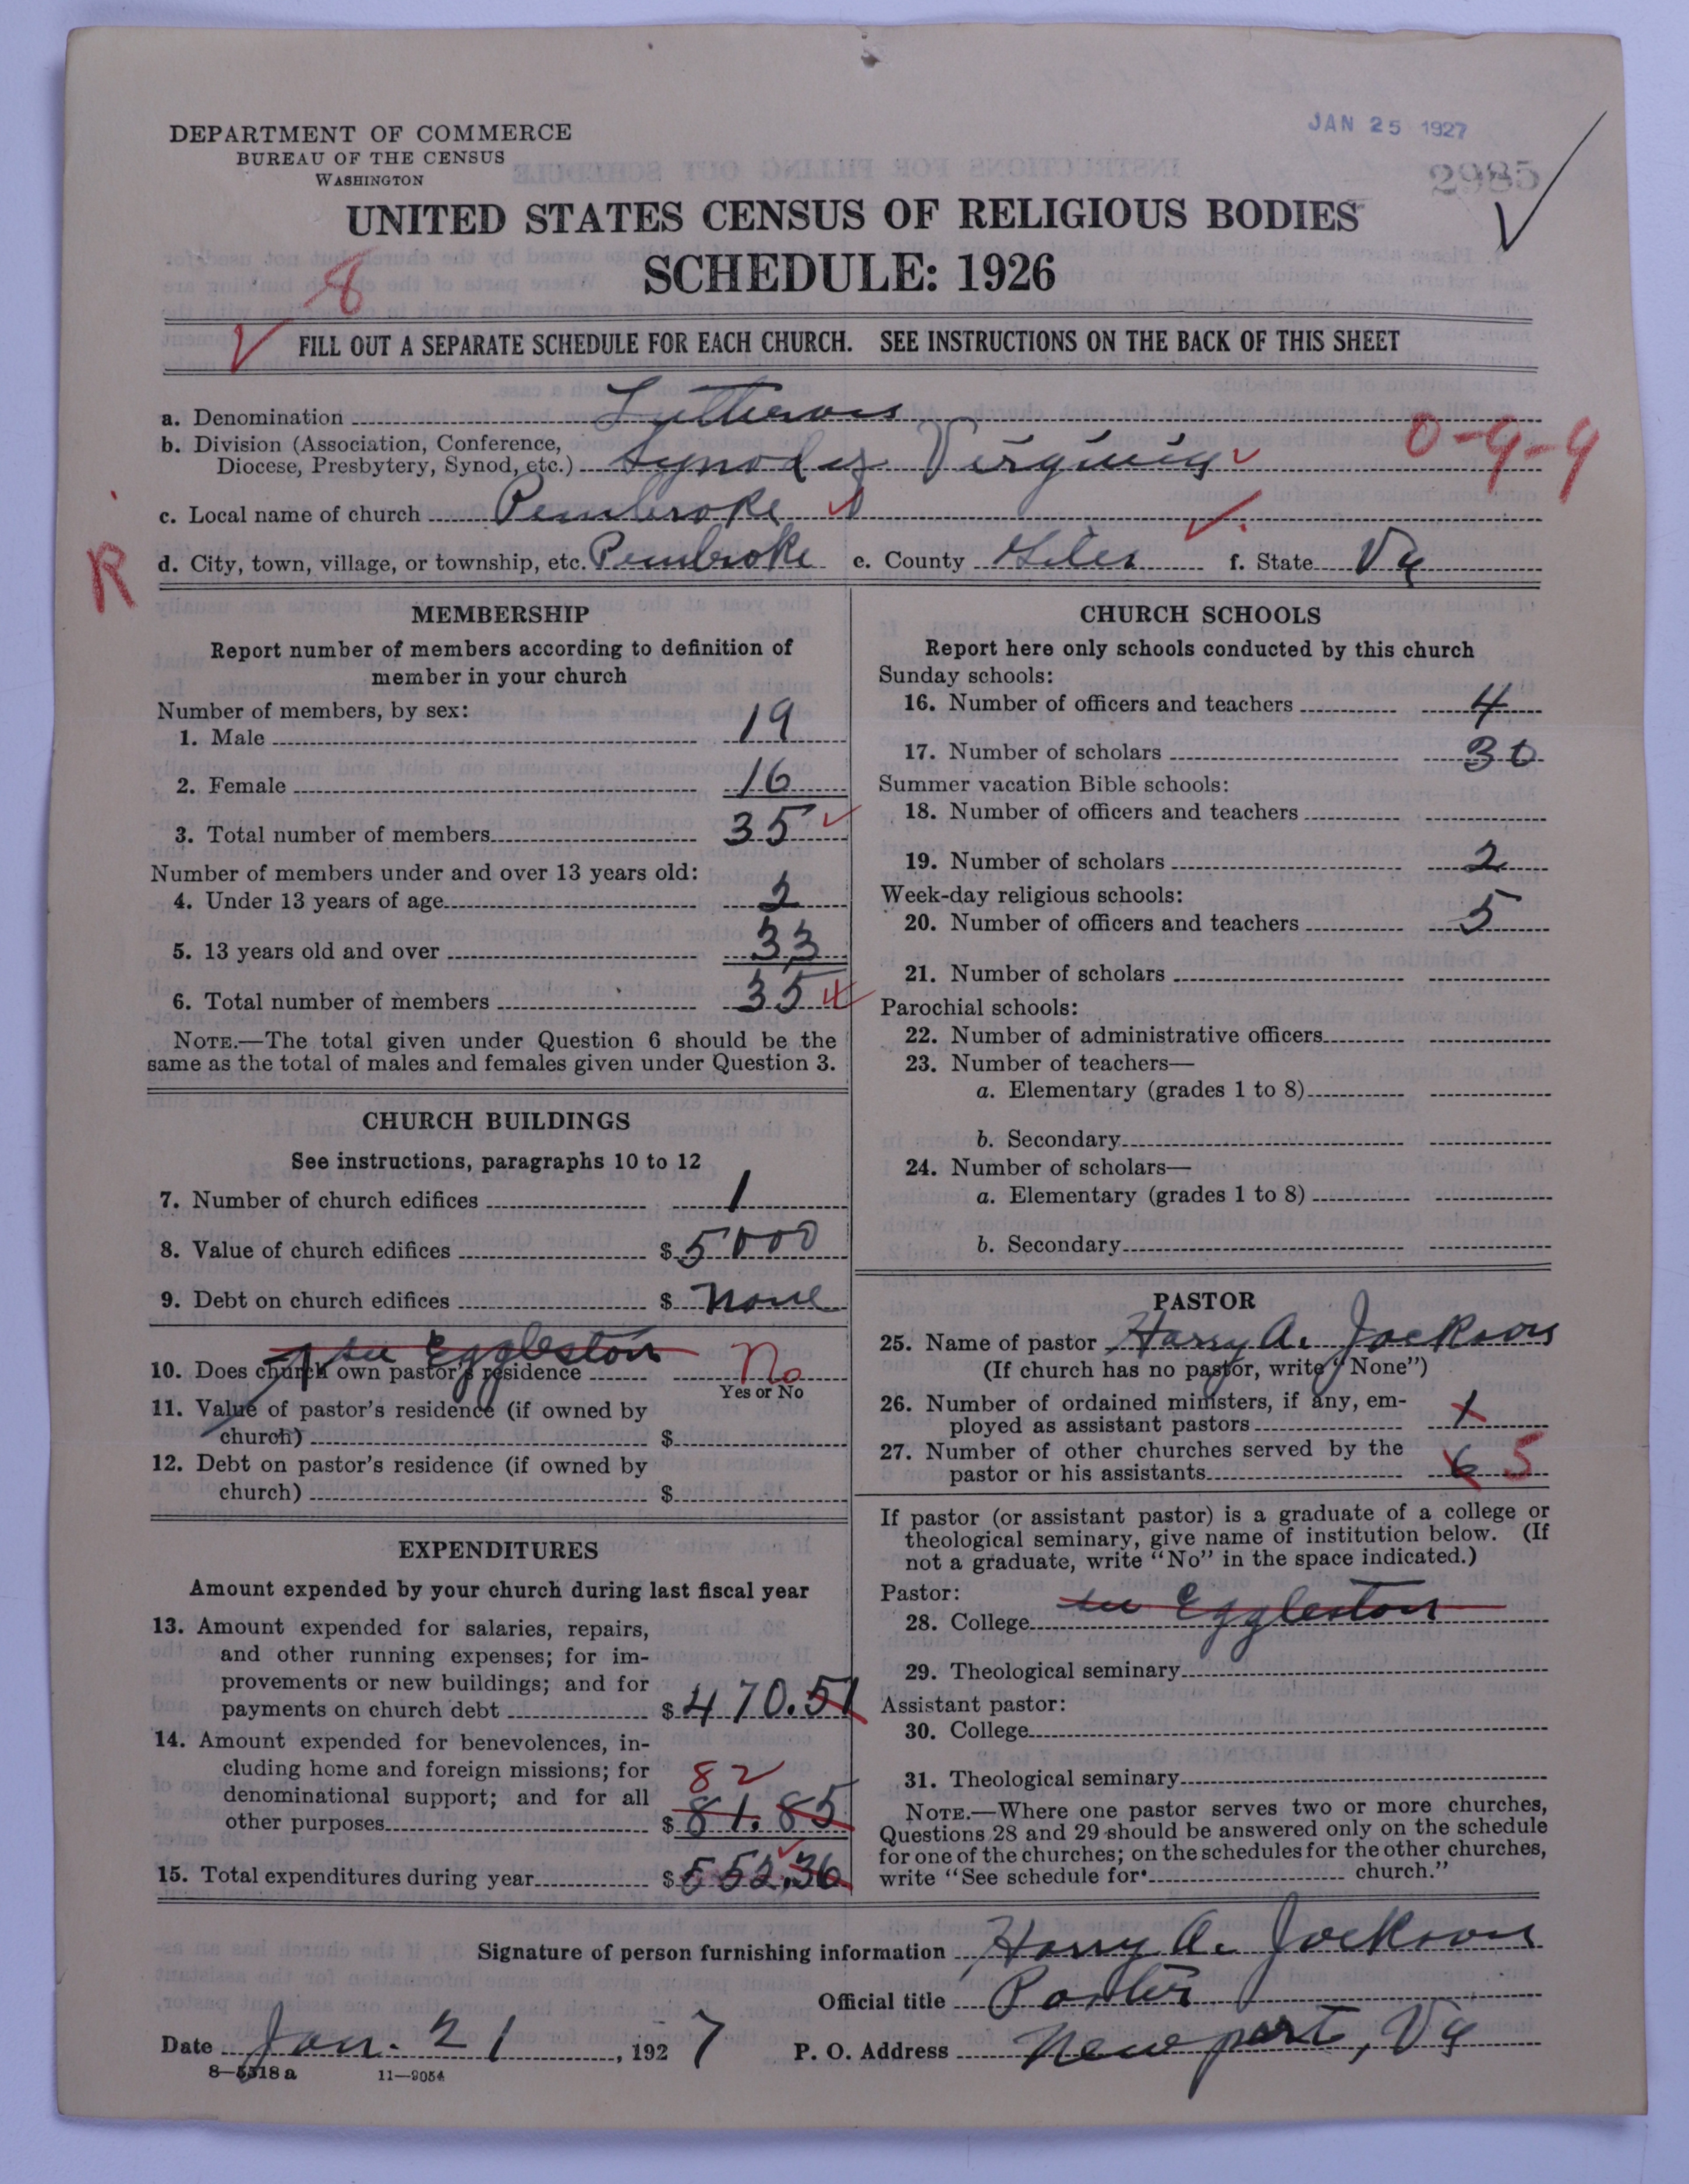 JAN 25 1927
2985
DEPARTMENT OF COMMERCE
BUREAU OF THE CENSUS
WASHINGTON
UNITED STATES CENSUS OF RELIGIOUS BODIES
SCHEDULE: 1926
8
FILL OUT A SEPARATE SCHEDULE FOR EACH CHURCH. SEE INSTRUCTIONS ON THE BACK OF THIS SHEET
a. Denomination Lutheran
b. Division (Association, Conference,
Diocese, Presbytery, Synod, etc.) Synod of Virginia
0-9-9
c. Local name of church Pembroke
R
d. City, town, village, or township, etc. Pembroke e. County Giles f. State Va
MEMBERSHIP
Report number of members according to definition of
member in your church
Number of members, by sex:
1. Male 19
2. Female 16
3. Total number of members 35
Number of members under and over 13 years old:
4. Under 13 years of age 2
5. 13 years old and over 33
6. Total number of members 35
NOTE.—The total given under Question 6 should be the
same as the total of males and females given under Question 3.
CHURCH BUILDINGS
See instructions, paragraphs 10 to 12
7. Number of church edifices 1
8. Value of church edifices $ 5000
9. Debt on church edifices $ None
see Eggleston
10. Does church own pastor's residence No
Yes or No
11. Value of pastor's residence (if owned by
church) $
12. Debt on pastor's residence (if owned by
church) $
EXPENDITURES
Amount expended by your church during last fiscal year
13. Amount expended for salaries, repairs,
and other running expenses; for im-
provements or new buildings; and for
payments on church debt $ 470.51
14. Amount expended for benevolences, in-
cluding home and foreign missions; for
82
denominational support; and for all
other purposes $ 81.85
15. Total expenditures during year $ 552.36
CHURCH SCHOOLS
Report here only schools conducted by this church
Sunday schools:
16. Number of officers and teachers 4
17. Number of scholars 30
Summer vacation Bible schools:
18. Number of officers and teachers
19. Number of scholars 2
Week-day religious schools:
20. Number of officers and teachers 5
21. Number of scholars
Parochial schools:
22. Number of administrative officers
23. Number of teachers—
a. Elementary (grades 1 to 8)
b. Secondary
24. Number of scholars—
a. Elementary (grades 1 to 8)
b. Secondary
PASTOR
25. Name of pastor Harry A. Jackson
(If church has no pastor, write "None")
26. Number of ordained ministers, if any, em-
ployed as assistant pastors 1
27. Number of other churches served by the
pastor or his assistants 6 5
If pastor (or assistant pastor) is a graduate of a college or
theological seminary, give name of institution below. (If
not a graduate, write "No" in the space indicated.)
Pastor:
28. College see Eggleston
29. Theological seminary
Assistant pastor:
30. College
31. Theological seminary
NOTE.—Where one pastor serves two or more churches,
Questions 28 and 29 should be answered only on the schedule
for one of the churches; on the schedules for the other churches,
write "See schedule for church."
Signature of person furnishing information Harry A. Jackson
Official title Pastor
Date Jan. 21, 1927 P. O. Address Newport, Va
8—5318 a 11—9054